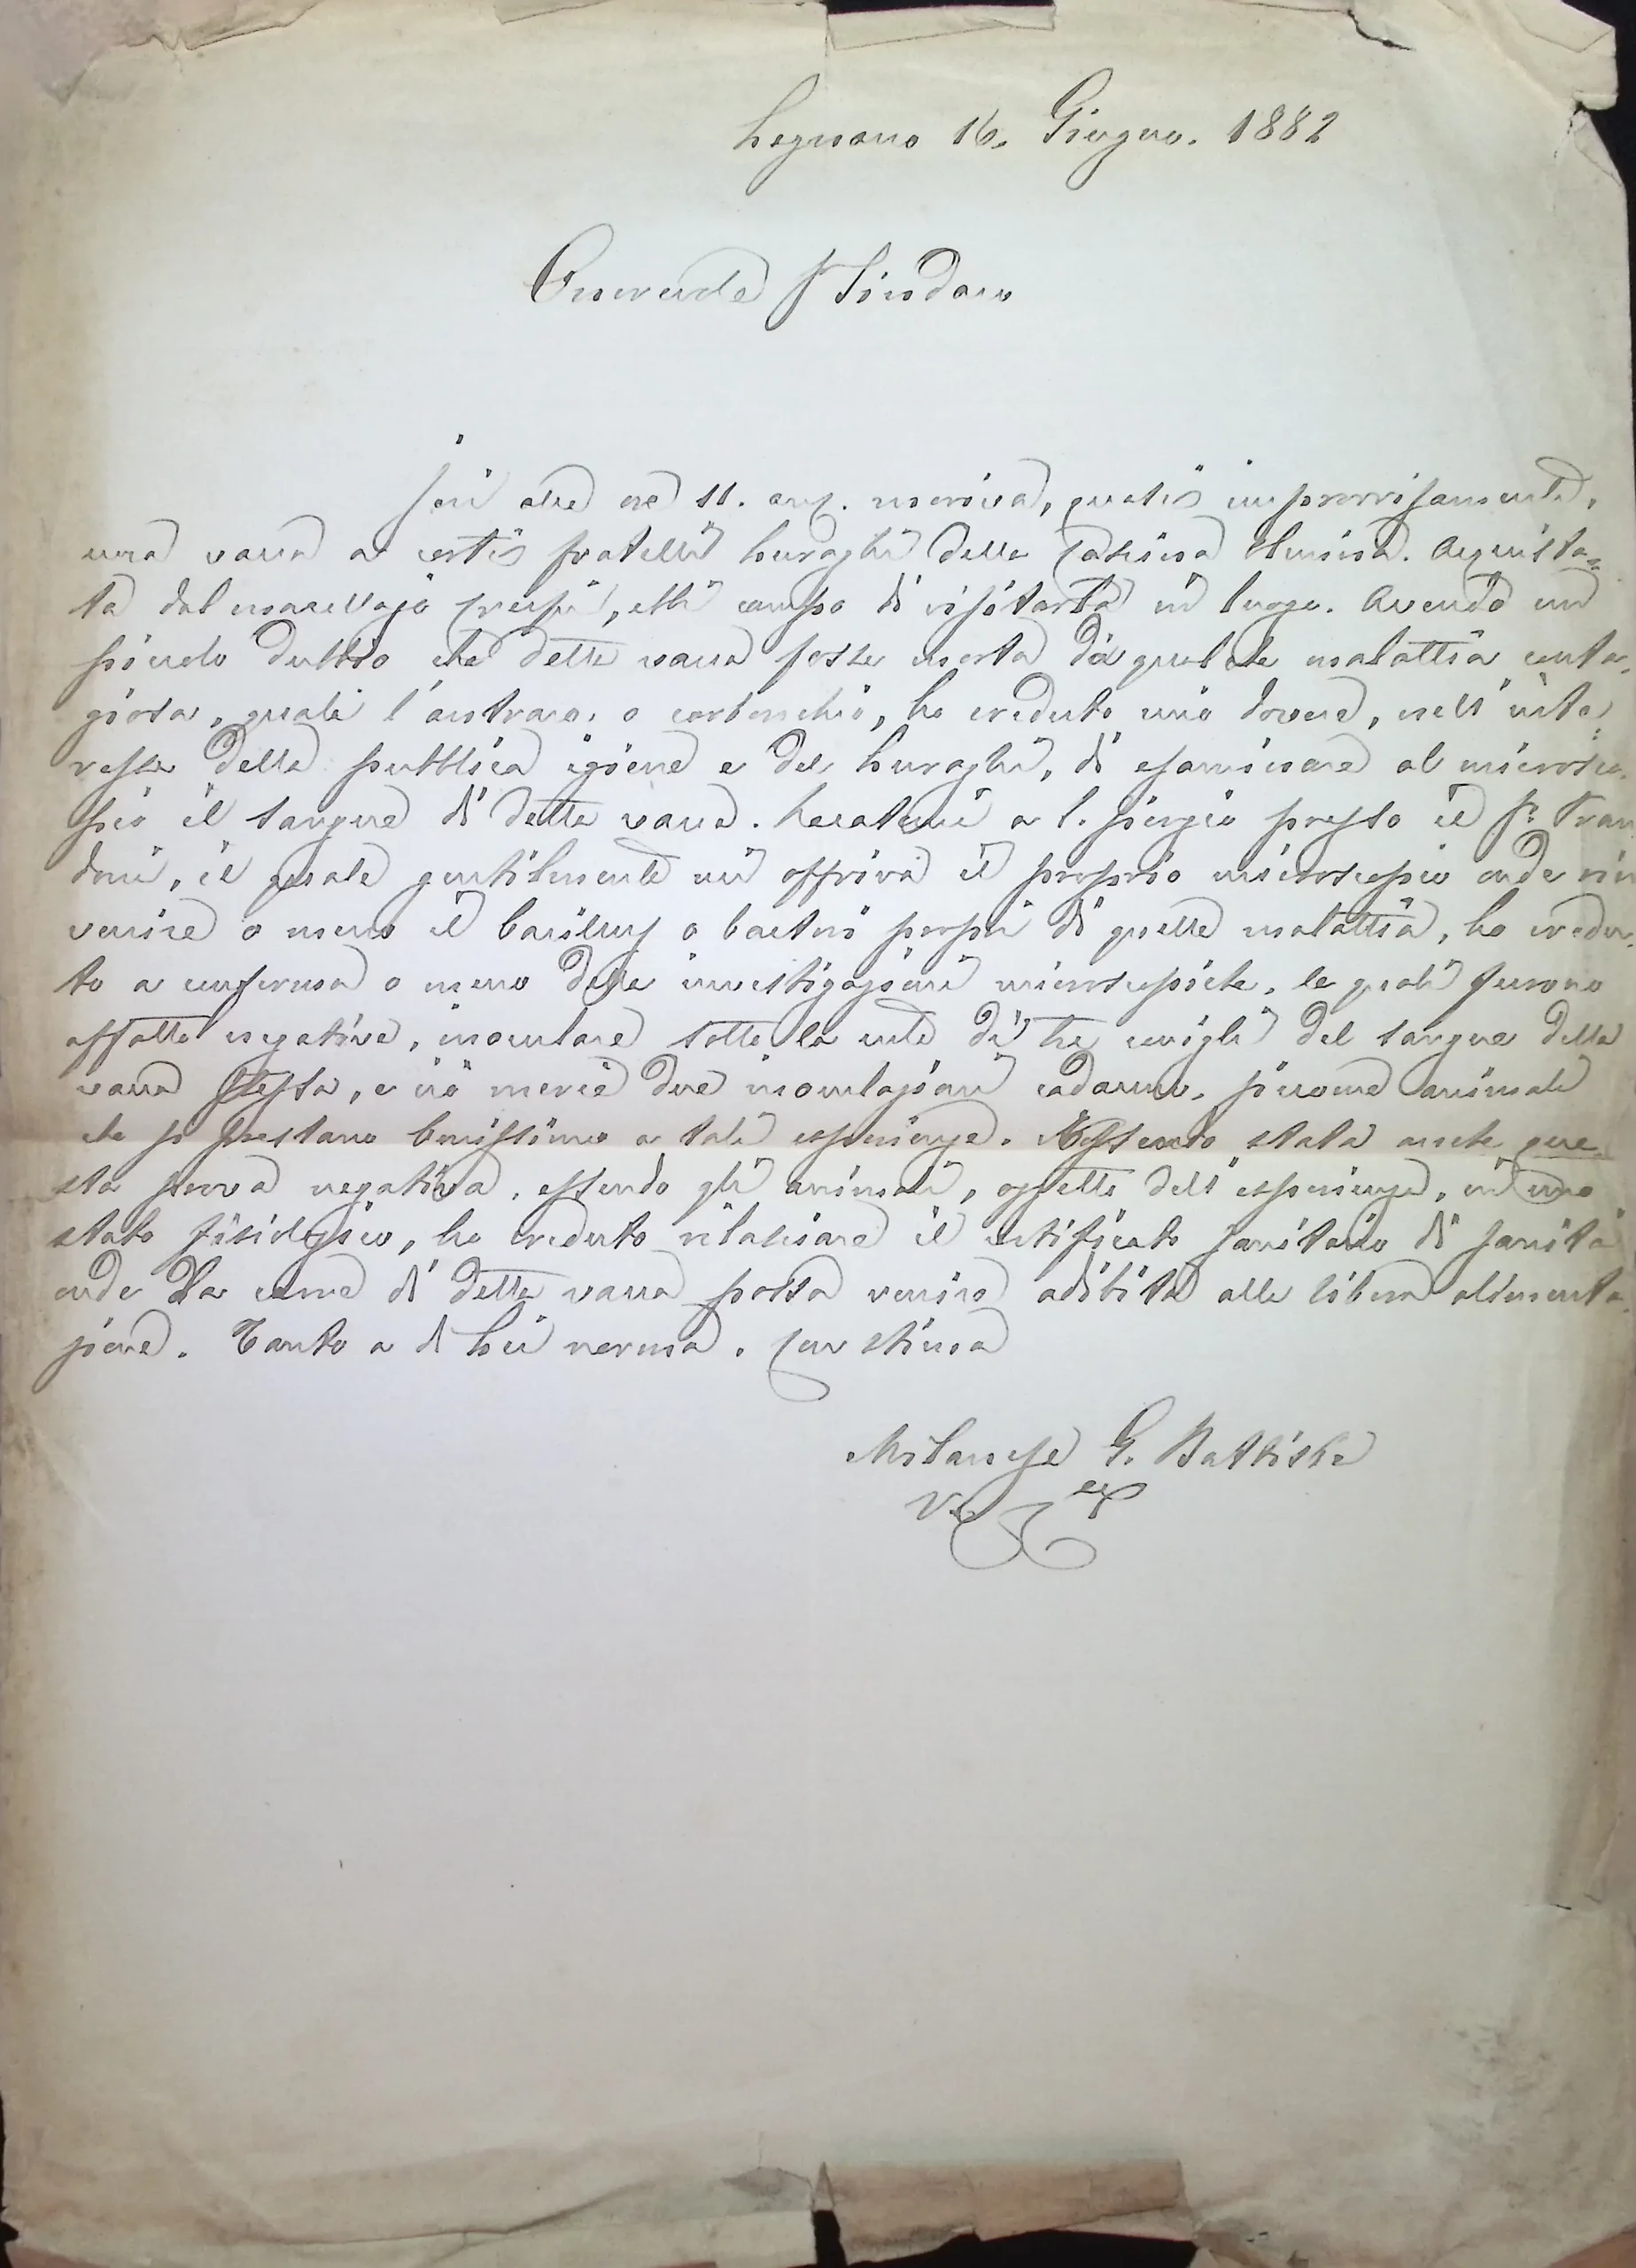 Legnano 16. Giugno. 1882
Onorevole S. Sindaco
Jeri alle ore 11. ant. moriva, quasi improvvisamente,
una vacca a certi fratelli Luraghi della Cascina Olmina. Acquista-
ta dal macellajo Crespi, ebbi campo di visitarla in luogo. Avendo un
piccolo dubbio che detta vacca fosse morta da qualche malattia conta-
giosa, quale l'antrace, o carbonchio, ho creduto mio dovere, nell'inte-
resse della pubblica igiene e del Luraghi, di esaminare al microsco-
pio il sangue di detta vacca. Recatomi a S. Giorgio presso il Sr. Tran
doni, il quale gentilmente mi offriva il proprio microscopio onde rin
venire o meno il bacillus o batteri proprii di quella malattia, ho credu-
to a conferma o meno delle investigazioni microscopiche, le quali furono
affatto negative, inoculare sotto la cute di tre conigli del sangue della
vacca stessa, e ciò mercè due inoculazioni cadauno, siccome animali
che si prestano benissimo a tali esperienze. Essendo stata anche que-
sta prova negativa, essendo gli animali, oggetto dell'esperienza, in uno
stato fisiologico, ho creduto rilasciare il certificato sanitario di sanità
onde la carne di detta vacca possa venire adibita alla libera alimenta-
zione. Tanto a di Lei norma. Con stima
Milanese G. Battista